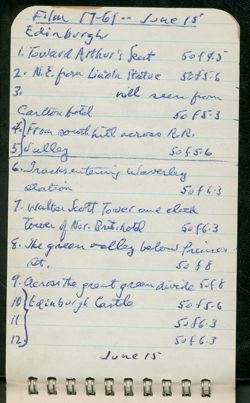 Film 17-61 -- June 15
Edinburgh
1. Toward Arthur's Seat 50 f 4.5
2. N.E. from Lincoln Statue 50 f 5.6
3. hill seen from
Carlton hotel 50 f 5.3
4. From south hill across R.R.
5 valley 50 f 5.6
6. Tracks entering Waverley
station 50 f 6.3
7. Walter Scott Tower and clock
Tower of Nor. Brit. hotel 50 f 6.3
8. The green valley below Princes
St. 50 f 8
9. Across the great green divide 50 f 8
10 Edinburgh Castle 50 f 5.6
11 50 f 6.3
12 50 f 6.3
June 15